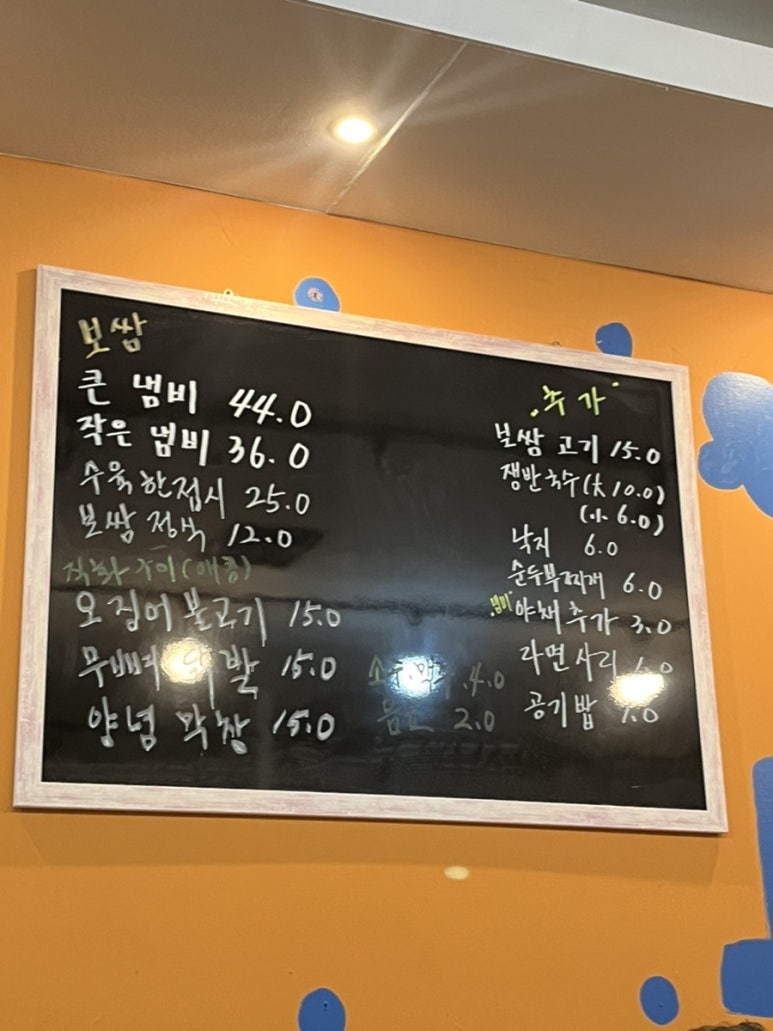 보쌈
큰 냄비 44.0
작은 냄비 36.0
수육한접시 25.0
보쌈 정식 12.0
직화구이(매콤)
오징어 불고기 15.0
무뼈 발 15.0
양념 막창 15.0
소주 맥주 4.0
음료 2.0
추가
보쌈 고기 15.0
쟁반국수(大 10.0)
(小 6.0)
낙지 6.0
순두부찌개 6.0
냄비 야채추가 3.0
라면사리
공기밥 1.0